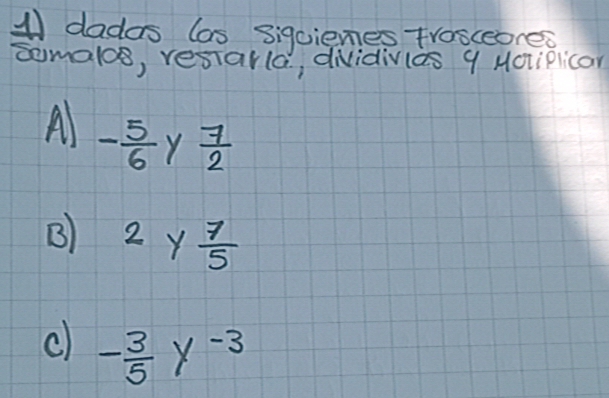 1) dadas las siguientes fracciones
sumalas, restarla, dividirlas y multiplicar
A) -5/6 y 7/2
B) 2 y 7/5
C) -3/5 y -3